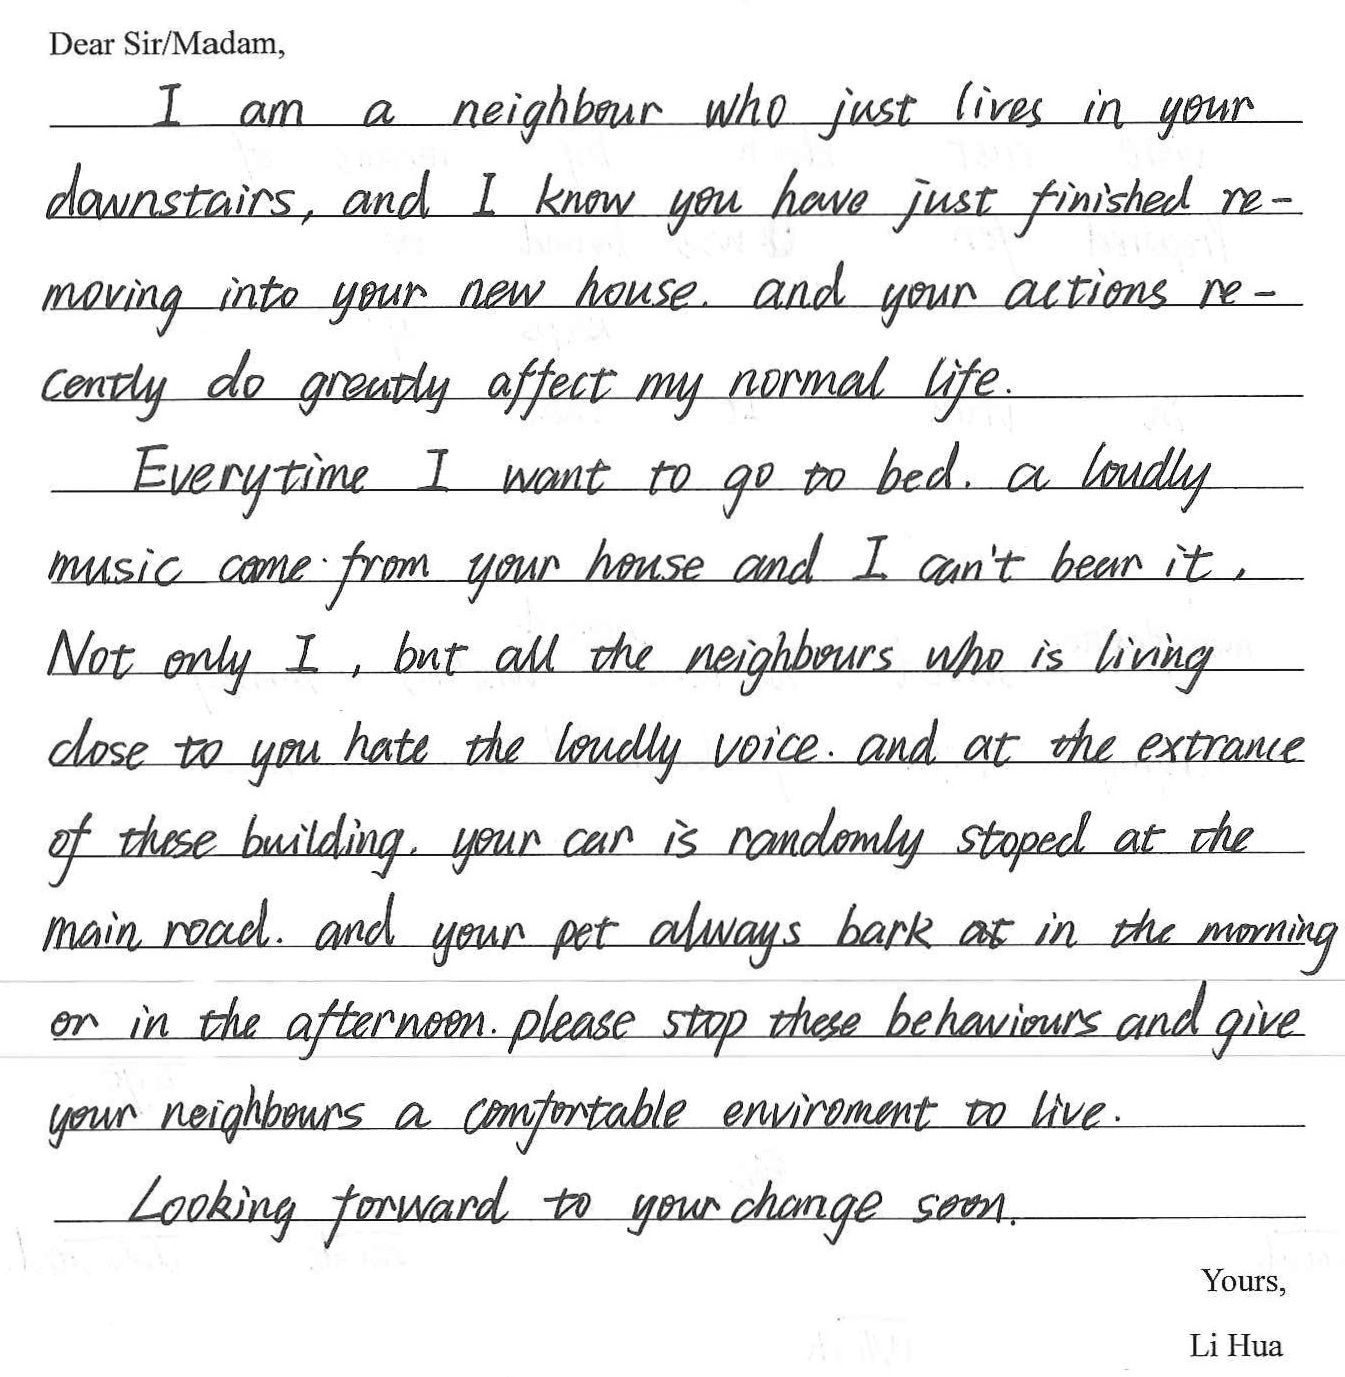 Dear Sir/Madam,
I am a neighbour who just lives in your
downstairs, and I know you have just finished re-
moving into your new house. and your actions re-
cently do greatly affect my normal life.
Everytime I want to go to bed. a loudly
music come from your house and I can't bear it.
Not only I, but all the neighbours who is living
close to you hate the loudly voice. and at the extrance
of these building. your car is randomly stoped at the
main road. and your pet always bark at in the morning
or in the afternoon. please stop these behaviours and give
your neighbours a comfortable enviroment to live.
Looking forward to your change soon.
Yours,
Li Hua